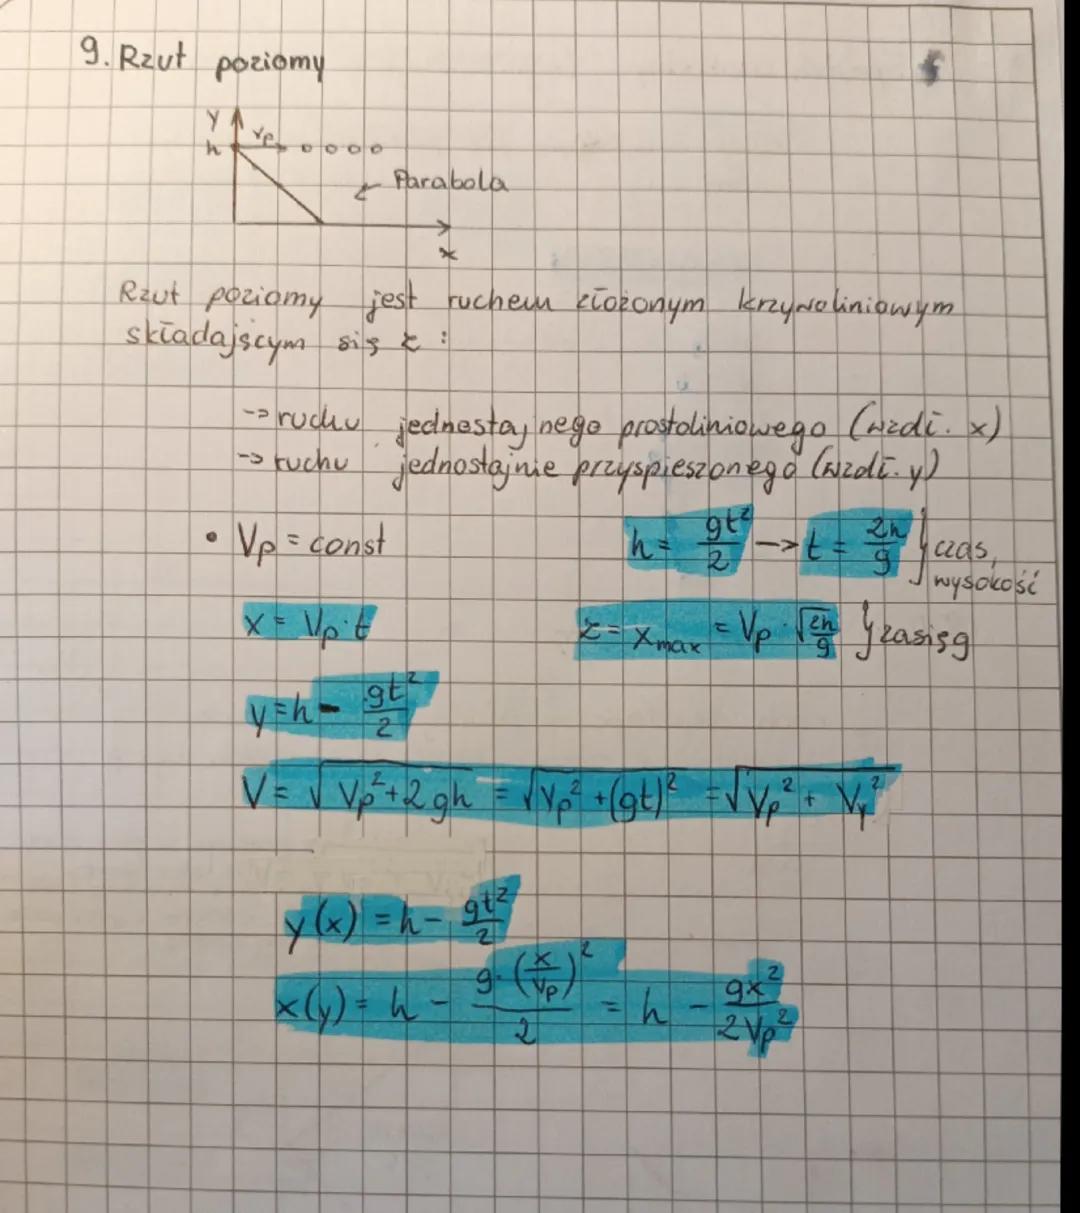 9. Rzut poziomy
y
h
Vp
Parabola
x
Rzut poziomy jest ruchem złożonym krzywoliniowym
składającym się z :
-> ruchu jednostajnego prostoliniowego (wzdł. x)
-> ruchu jednostajnie przyspieszonego (wzdł. y)
• Vp = const
h = gt²/2 -> t = 2h/g } czas, wysokość
x = Vp · t
z = xmax = Vp · √(2h/g) } zasięg
y = h - gt²/2
V = √(Vp² + 2gh) = √(Vp² + (gt)²) = √(Vp² + Vy²)
y(x) = h - gt²/2
x(y) = h - g·(x/Vp)²/2 = h - gx²/2Vp²